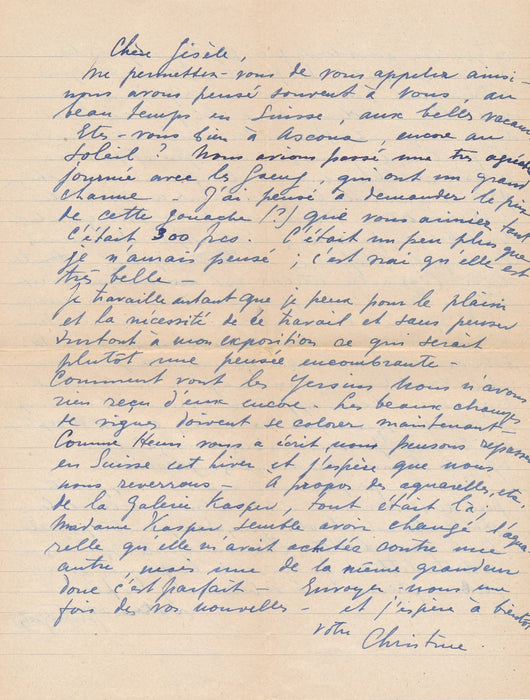 Chère Gisèle,
me permettez-vous de vous appeler ainsi-
nous avons pensé souvent à vous, au
beau temps en Suisse, aux belles vacances
Etes-vous bien à Ascona, encore au
soleil ? Nous avions passé une très agréable
journée avec les qui ont un grand
charme - J'ai pensé à demander le prix
de cette gouache (?) que vous aimiez tant
C'était 300 frcs. C'était un peu plus que
je n'aurais pensé ; c'est vrai qu'elle est
très belle -
Je travaille autant que je peux pour le plaisir
et la nécessité de ce travail et sans penser
surtout à mon exposition ce qui serait
plutôt une pensée encombrante -
Comment vont les Yersin Nous n'avons
rien reçu d'eux encore - Les beaux champs
de vignes doivent se colorer maintenant -
Comme Henri vous a écrit nous pensons repasser
en Suisse cet hiver et j'espère que nous
nous reverrons - A propos des aquarelles, etc
de la Galerie Kasper, tout était là ;
Madame Kasper semble avoir changé l'aqua
relle qu'elle m'avait achetée contre une
autre, mais une de la même grandeur
donc c'est parfait - Envoyez-nous une
fois de vos nouvelles - et j'espère à bientôt
votre Christine.